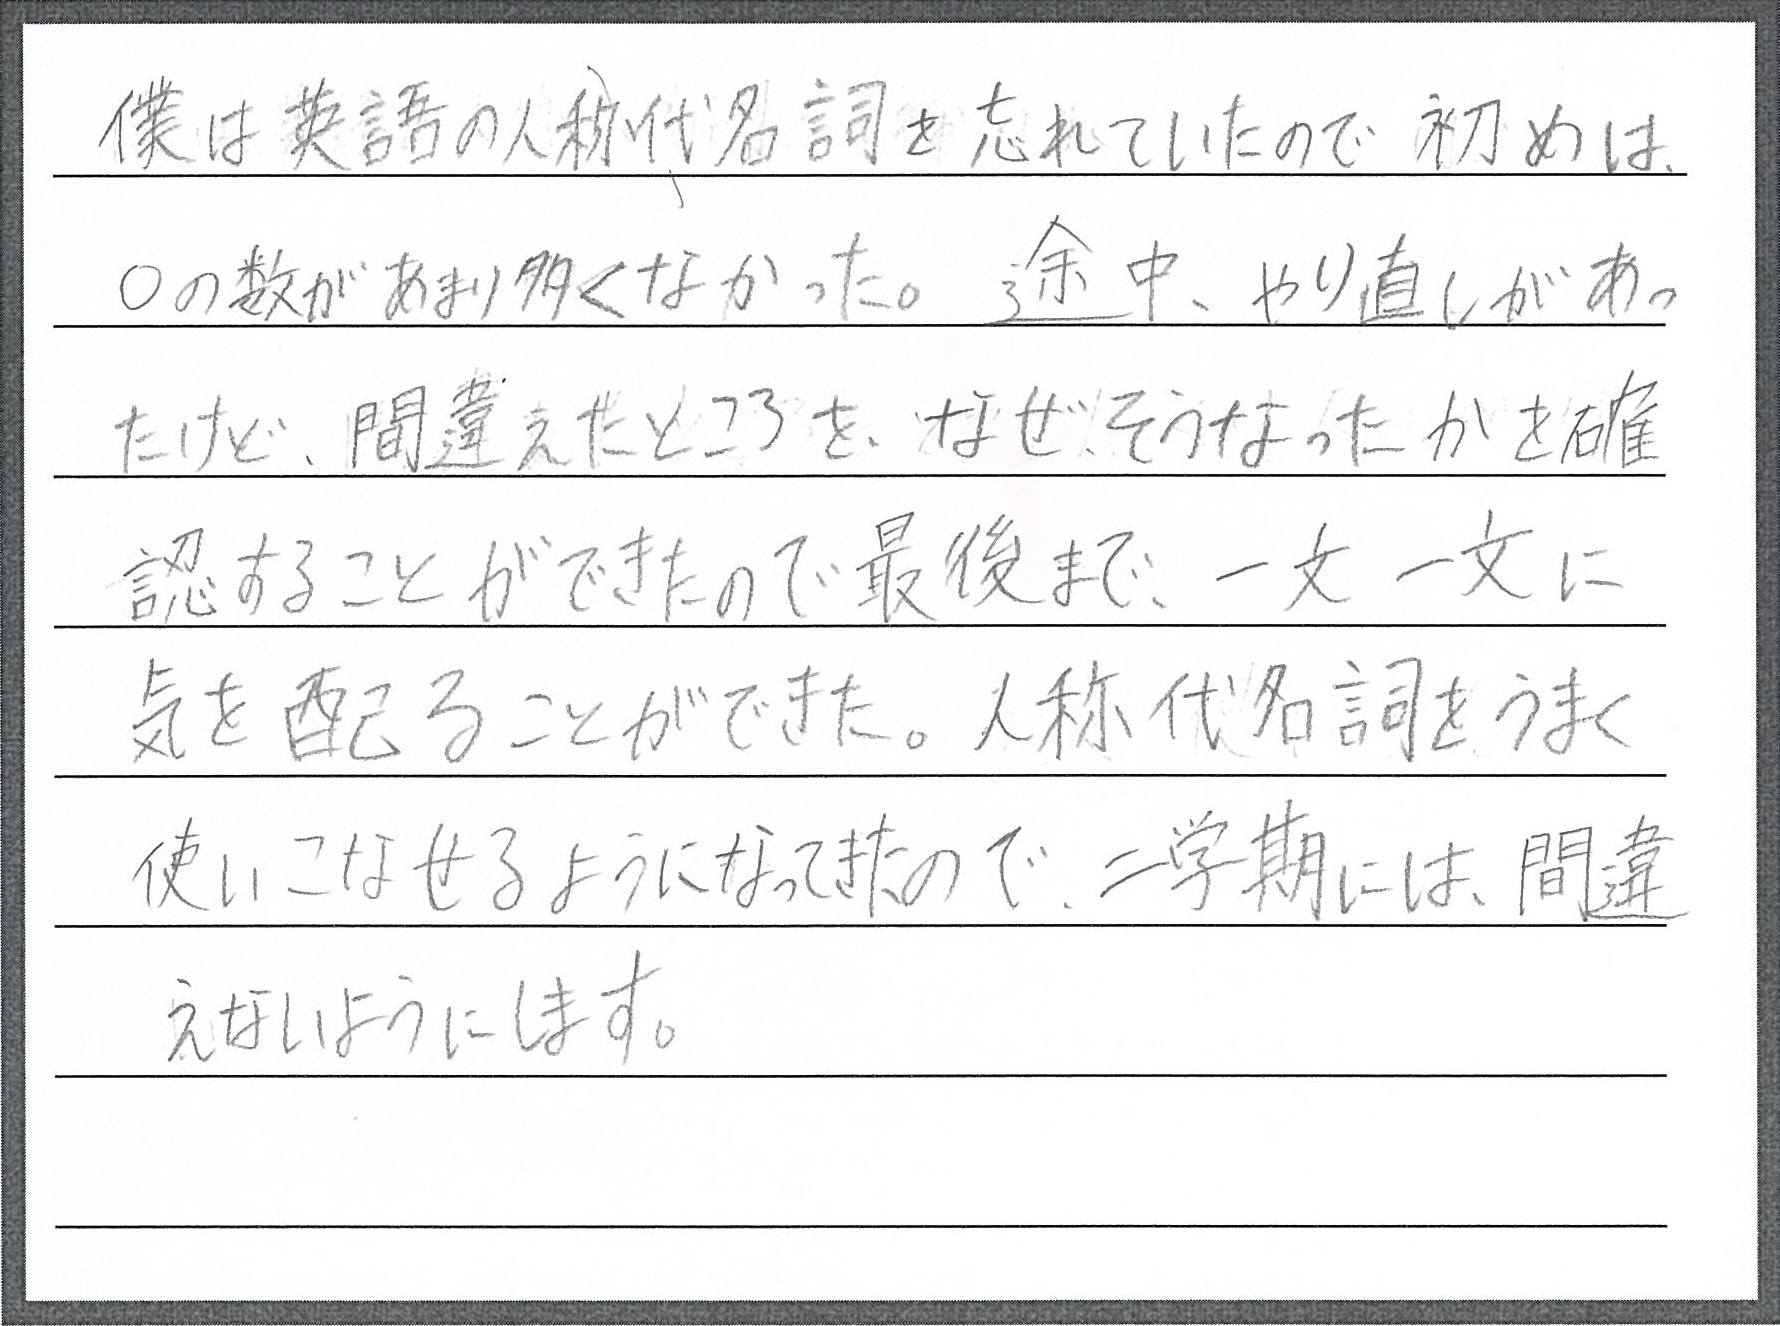 僕は英語の人称代名詞を忘れていたので初めは、
○の数があまり多くなかった。途中、やり直しがあっ
たけど、間違えたところを、なぜ、そうなったかを確
認することができたので最後まで、一文一文に
気を配ることができた。人称代名詞をうまく
使いこなせるようになってきたので、二学期には、間違
えないようにします。